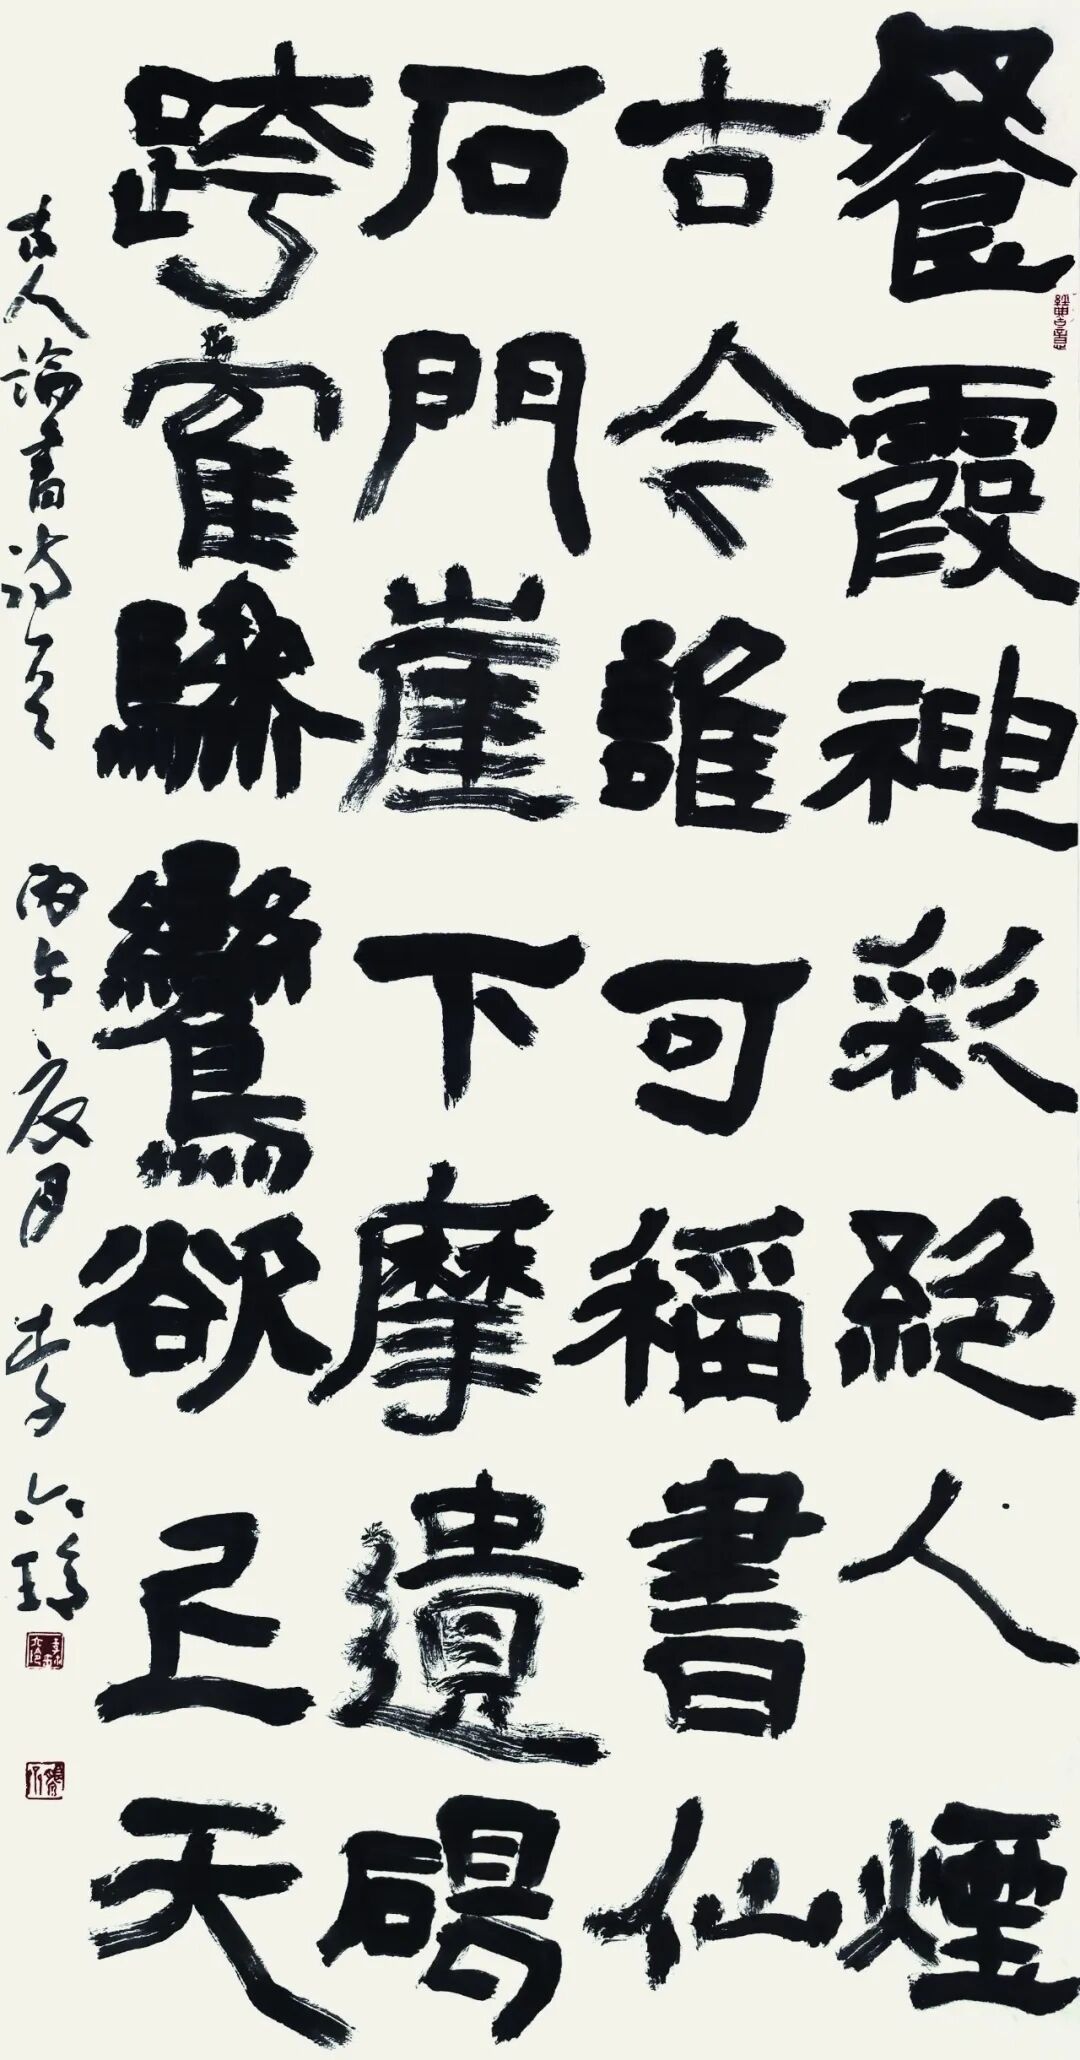 餐霞神彩絕人煙
古今誰可稱書仙
石門崖下摩遺碣
跨隺驂鸞欲上天
古人論書詩一首 丙午夏月 李六瑀